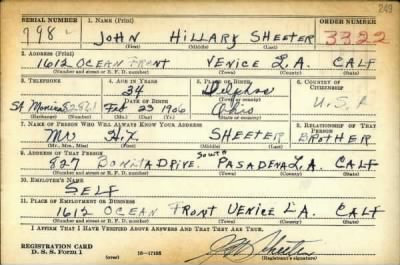 249
SERIAL NUMBER 1. NAME (Print) ORDER NUMBER
798 JOHN HILLARY SHEETER 3322
(First) (Middle) (Last)
2. ADDRESS (Print)
1612 OCEAN FRONT VENICE L.A. CALF
(Number and street or R. F. D. number) (Town) (County) (State)
3. TELEPHONE 4. AGE IN YEARS 5. PLACE OF BIRTH 6. COUNTRY OF CITIZENSHIP
34 Delphos
DATE OF BIRTH (Town or county) U.S.A
SA Monica 62861 Feb 23 1906 Ohio
(Exchange) (Number) (Mo.) (Day) (Yr.) (State or country)
7. NAME OF PERSON WHO WILL ALWAYS KNOW YOUR ADDRESS 8. RELATIONSHIP OF THAT PERSON
MR H.X. SHEETER BROTHER
(Mr., Mrs., Miss) (First) (Middle) (Last)
9. ADDRESS OF THAT PERSON
827 BONITA DRIVE. South PASADENA L.A. CALF
(Number and street or R. F. D. number) (Town) (County) (State)
10. EMPLOYER'S NAME
SELF
11. PLACE OF EMPLOYMENT OR BUSINESS
1612 OCEAN FRONT VENICE L.A. CALF
(Number and street or R. F. D. number) (Town) (County) (State)
I AFFIRM THAT I HAVE VERIFIED ABOVE ANSWERS AND THAT THEY ARE TRUE.
REGISTRATION CARD
D. S. S. Form 1 (over) 16-17105 J H Sheeter
(Registrant's signature)